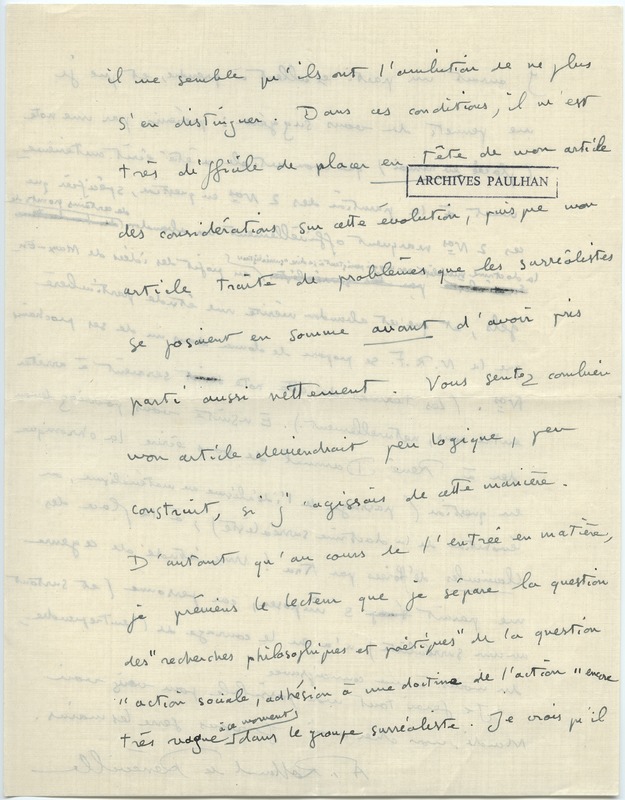 il me semble qu'ils ont l'ambition de ne plus
s'en distinguer. Dans ces conditions, il m'est
très difficile de placer en tête de mon article
ARCHIVES PAULHAN
des considérations sur cette évolution, puisque mon
article traite de problèmes que les surréalistes
se posaient en somme avant d'avoir pris
parti aussi nettement. Vous sentez combien
mon article deviendrait peu logique, peu
construit, si j'agissais de cette manière.
D'autant qu'au cours de l'entrée en matière,
je préviens le lecteur que je sépare la question
des "recherches philosophiques et poétiques" de la question
"action sociale, adhésion à une doctrine de l'action" encore
très vague à ce moment dans le groupe surréaliste. Je crois qu'il